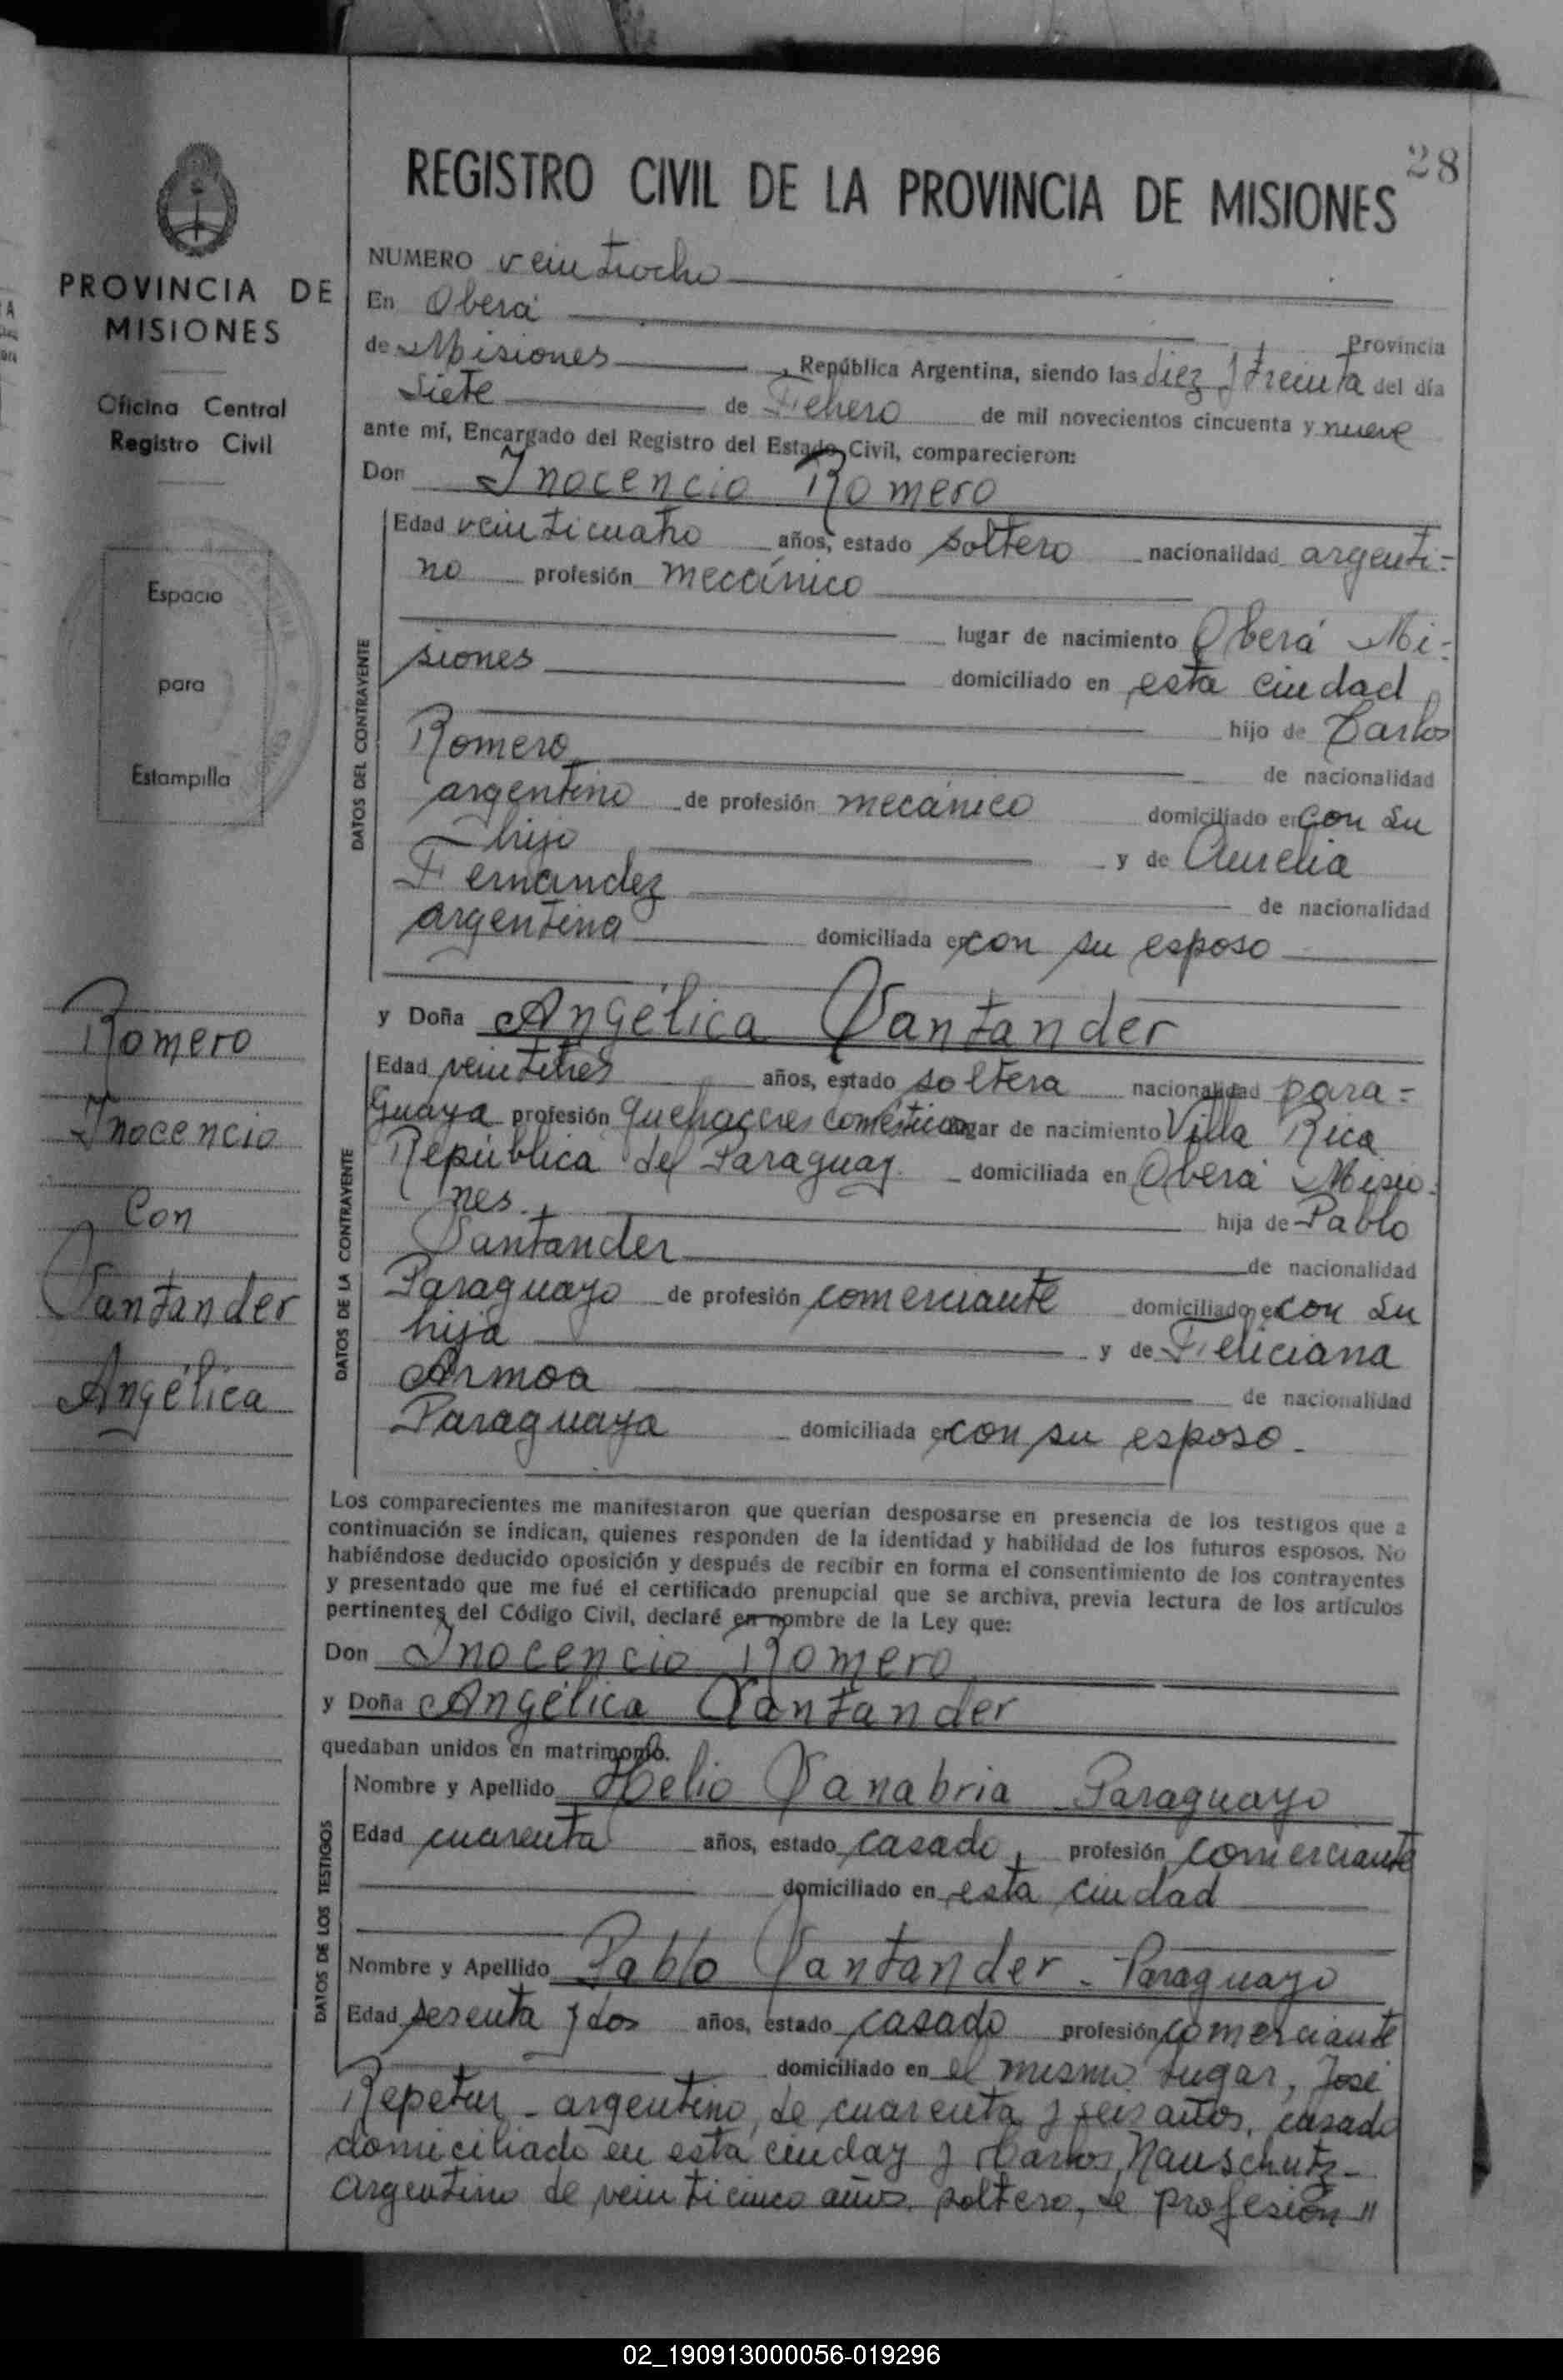 28
REGISTRO CIVIL DE LA PROVINCIA DE MISIONES
PROVINCIA DE
MISIONES
Oficina Central
Registro Civil
Espacio
para
Estampilla
Romero
Inocencio
Con
Santander
Angélica
NUMERO veintiocho
En Oberá
Provincia
de Misiones, República Argentina, siendo las diez y treinta del día
siete de Febrero de mil novecientos cincuenta y nueve
ante mí, Encargado del Registro del Estado Civil, comparecieron:
Don Inocencio Romero
DATOS DEL CONTRAYENTE
Edad veinticuatro años, estado soltero nacionalidad argenti=
no profesión mecánico
lugar de nacimiento Oberá Mi=
siones domiciliado en esta ciudad
hijo de Carlos
Romero
de nacionalidad
argentino de profesión mecánico domiciliado en con su
hijo y de Aurelia
Fernandez de nacionalidad
argentina domiciliada en con su esposo
y Doña Angélica Santander
DATOS DE LA CONTRAYENTE
Edad veintitres años, estado soltera nacionalidad para=
guaya profesión quehaceres domésticos lugar de nacimiento Villa Rica
República del Paraguay domiciliada en Oberá Misio-
nes. hija de Pablo
Santander de nacionalidad
Paraguayo de profesión comerciante domiciliado en con su
hija y de Feliciana
Armoa de nacionalidad
Paraguaya domiciliada en con su esposo.
Los comparecientes me manifestaron que querían desposarse en presencia de los testigos que a
continuación se indican, quienes responden de la identidad y habilidad de los futuros esposos. No
habiéndose deducido oposición y después de recibir en forma el consentimiento de los contrayentes
y presentado que me fué el certificado prenupcial que se archiva, previa lectura de los artículos
pertinentes del Código Civil, declaré en nombre de la Ley que:
Don Inocencio Romero
y Doña Angélica Santander
quedaban unidos en matrimonio.
DATOS DE LOS TESTIGOS
Nombre y Apellido Helio Sanabria Paraguayo
Edad cuarenta años, estado casado, profesión comerciante
domiciliado en esta ciudad
Nombre y Apellido Pablo Santander - Paraguayo
Edad sesenta y dos años, estado casado profesión comerciante
domiciliado en el mismo lugar, José
argentino, de cuarenta y seis años, casado
domiciliado en esta ciuday y Carlos
argentino de veinticinco años, soltero, de profesión "
02_190913000056-019296